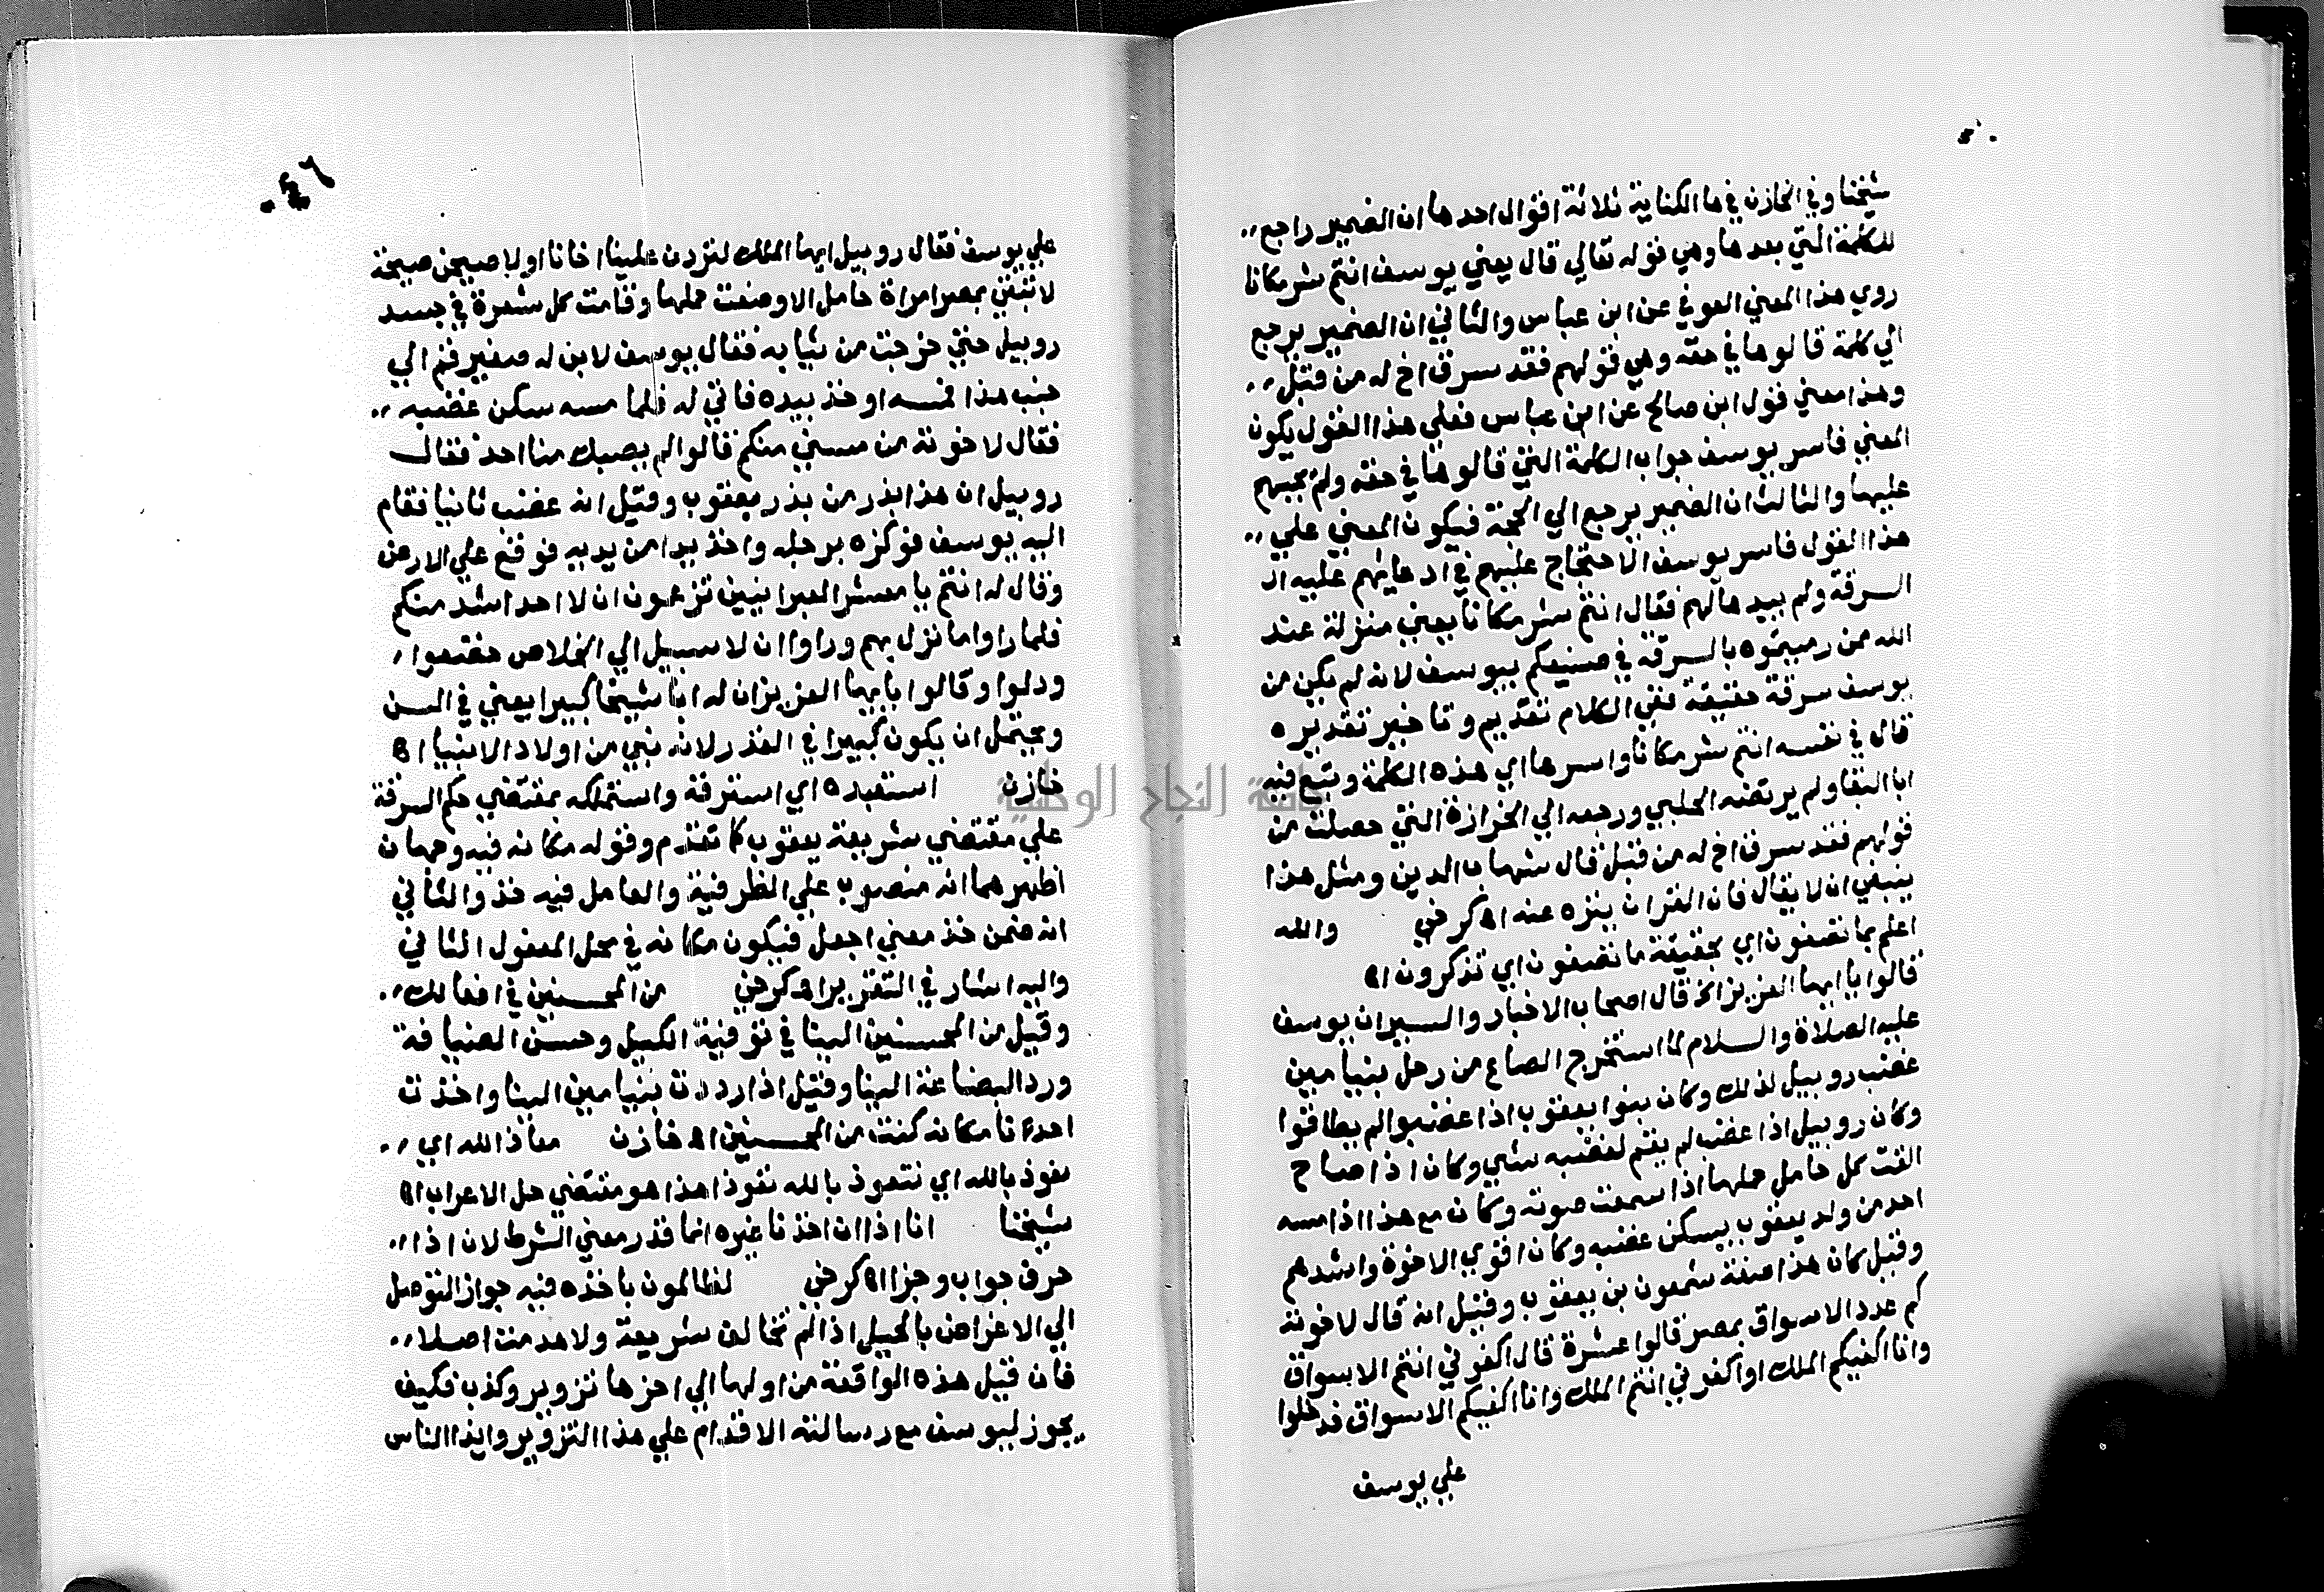 شيخنا وفي الخازن في ها الكناية ثلاثة اقوال احدها ان الضمير راجع
للكلمة التي بعدها وهي قوله تعالي قال يعني يوسف انتم شر مكانا
روي هذا المعني العوفي عن ابن عباس والثاني ان الضمير يرجع
الي كلمة قالوها في حقه وهي قولهم فقد سرق اخ له من قبل
وهذا معني قول ابن صالح عن ابن عباس فعلي هذا القول يكون
المعني فاسر يوسف جواب الكلمة التي قالوها في حقه ولم يجبهم
عليها والثالث ان الضمير يرجع الي الحجة فيكون المعني علي
هذا القول فاسر يوسف الاحتجاج عليهم في ادعايهم عليه الـ
السرقة ولم يبدها لهم فقال انتم شر مكانا يعني منزلة عند
الله ممن رميتموه بالسرقة في صنيعكم بيوسف لانه لم يكن من
يوسف سرقة حقيقة ففي الكلام تقديم وتاخير تقديره
قال في نفسه انتم شر مكانا واسرها اي هذه الكلمة وتبع فيه
ابا البقا ولم يرتضه الحلبي ورجعه الي الحزازة التي حصلت من
قولهم فقد سرق اخ له من قبل قال شهاب الدين ومثل هذا
ينبغي ان لا يقال فان القران ينزه عنه اه كرخي والله
اعلم بما تصفون اي بحقيقة ما تصفون اي تذكرون اه
قالوا يا ايها العزيز الخ قال اصحاب الاخبار والسير ان يوسف
عليه الصلاة والسلام لما استخرج الصاع من رحل بنيامين
غضب روبيل لذلك وكان بنوا يعقوب اذا غضبوا لم يطاقوا
وكان روبيل اذا غضب لم يقم لغضبه شي وكان اذا صاح
القت كل حامل حملها اذا سمعت صوته وكان مع هذا اذا مسه
احد من ولد يعقوب يسكن غضبه وكان اقوي الاخوة واشدهم
وقيل كان هذا صفة شمعون بن يعقوب وقيل انه قال لاخوته
كم عدد الاسواق بمصر قالوا عشرة قال اكفوني انتم الاسواق
وانا اكفيكم الملك او اكفوني انتم الملك وانا اكفيكم الاسواق فدخلوا
علي يوسف
٠٤٦
علي يوسف فقال روبيل ايها الملك لتردن علينا اخانا او لاصيحن صيحة
لا تبقي بمصر امراة حامل الا وضعت حملها وقامت كل شعرة في جسد
روبيل حتي خرجت من ثيابه فقال يوسف لابن له صغير قم الي
جنب هذا فمسه او خذ بيده فاتي له فلما مسه سكن غضبه
فقال لاخوته من مسني منكم قالوا لم يصبك منا احد فقال
روبيل ان هذا بذر من بذر يعقوب وقيل انه غضب ثانيا فقام
اليه يوسف فوكزه برجله واخذ بيدا من يديه فوقع علي الارض
وقال له انتم يا معشر العبرانيين تزعمون ان لا احد اشد منكم
فلما راوا ما نزل بهم وراوا ان لا سبيل الي الخلاص خضعوا
وذلوا وقالوا يا ايها العزيز ان له ابا شيخا كبيرا يعني في السن
ويحتمل ان يكون كبيرا في القدر لانه نبي من اولاد الانبيا اه
خازن استعبده اي استرقه واستملكه بمقتضي حكم السرقة
علي مقتضي شريعة يعقوب كما تقدم وقوله مكانه فيه وجهان
اظهرهما انه منصوب علي الظرفية والعامل فيه خذ والثاني
انه ضمن خذ معني اجعل فيكون مكانه في محل المفعول الثاني
واليه اشار في التقرير اه كرخي من المحسنين في افعالك
وقيل من المحسنين الينا في توفية الكيل وحسن الضيافة
ورد البضاعة الينا وقيل اذا رددت بنيامين الينا واخذت
احدنا مكانه كنت من المحسنين اه خازن معاذ الله اي
نعوذ بالله اي نتعوذ بالله تعوذا هذا هو مقتضي حل الاعراب اه
شيخنا انا اذا ان اخذنا غيره انما قدر معني الشرط لان اذا
حرف جواب وجزا اه كرخي لظالمون باخذه فيه جواز التوصل
الي الاغراض بالحيل اذا لم تخالف شريعة ولا هدمت اصلا
فان قيل هذه الواقعة من اولها الي اخرها تزوير وكذب فكيف
يجوز ليوسف مع رسالته الاقدام علي هذا التزوير وايذا الناس
جامعة النجاح الوطنية